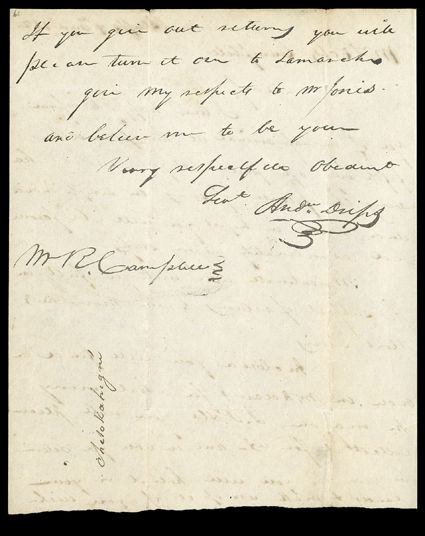 If you give out returning you will
please turn it over to Lamarche
give my respects to Mr Jones.
and believe me to be your
Verry respectful Obedient
Sevt. Andw. Drips
Mr R. Campbell